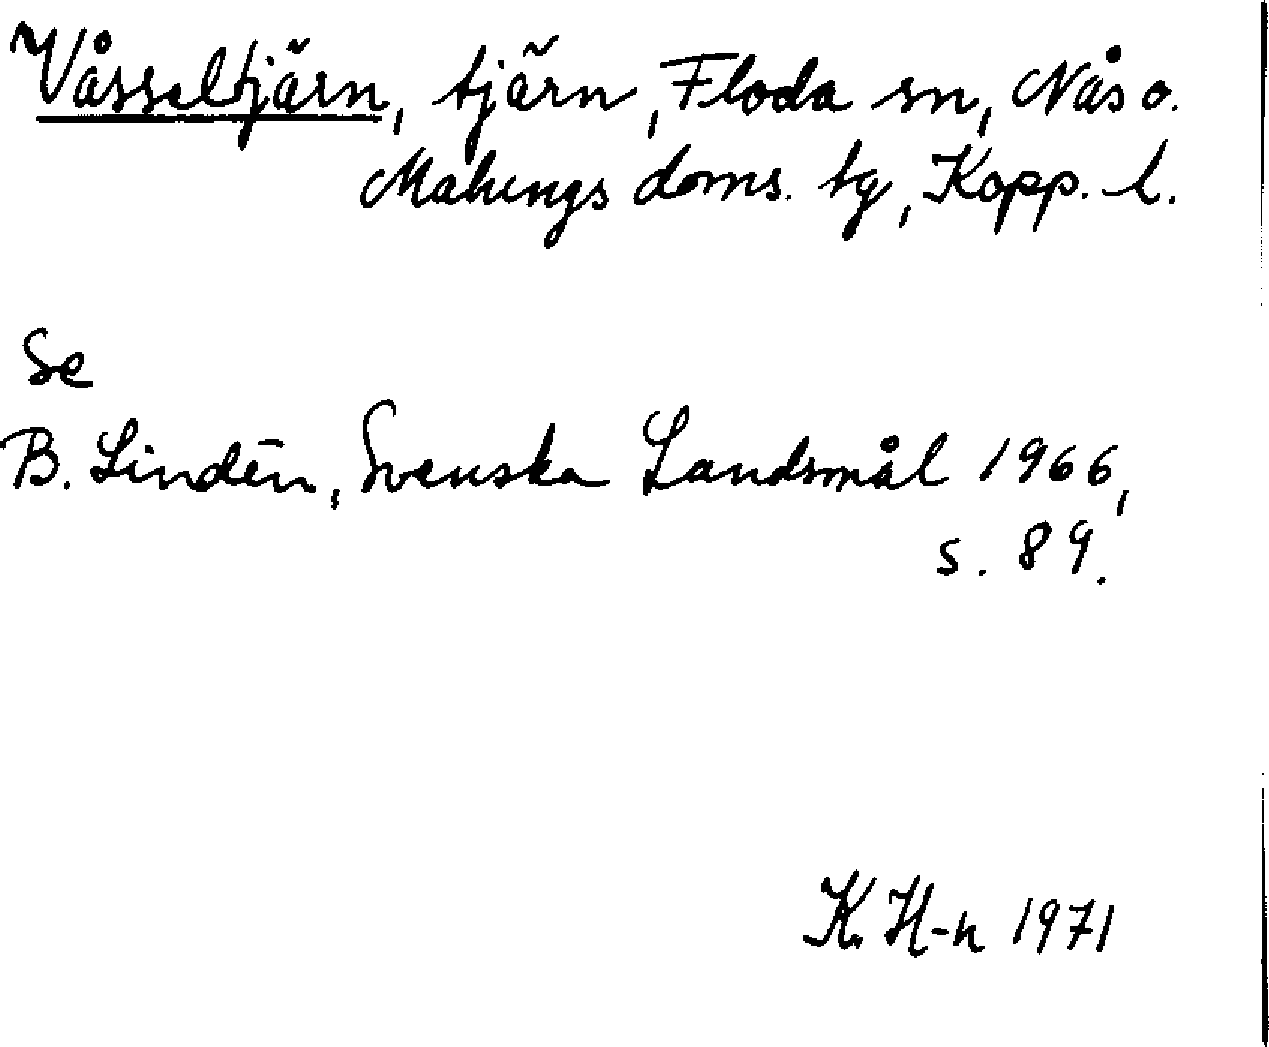 Våsseltjärn, tjärn, Floda sn, Nås o.
Malungs doms. tg, Kopp. l.
Se
B. Lindén, Svenska Landsmål 1966,
s. 89.
K. H-n 1971